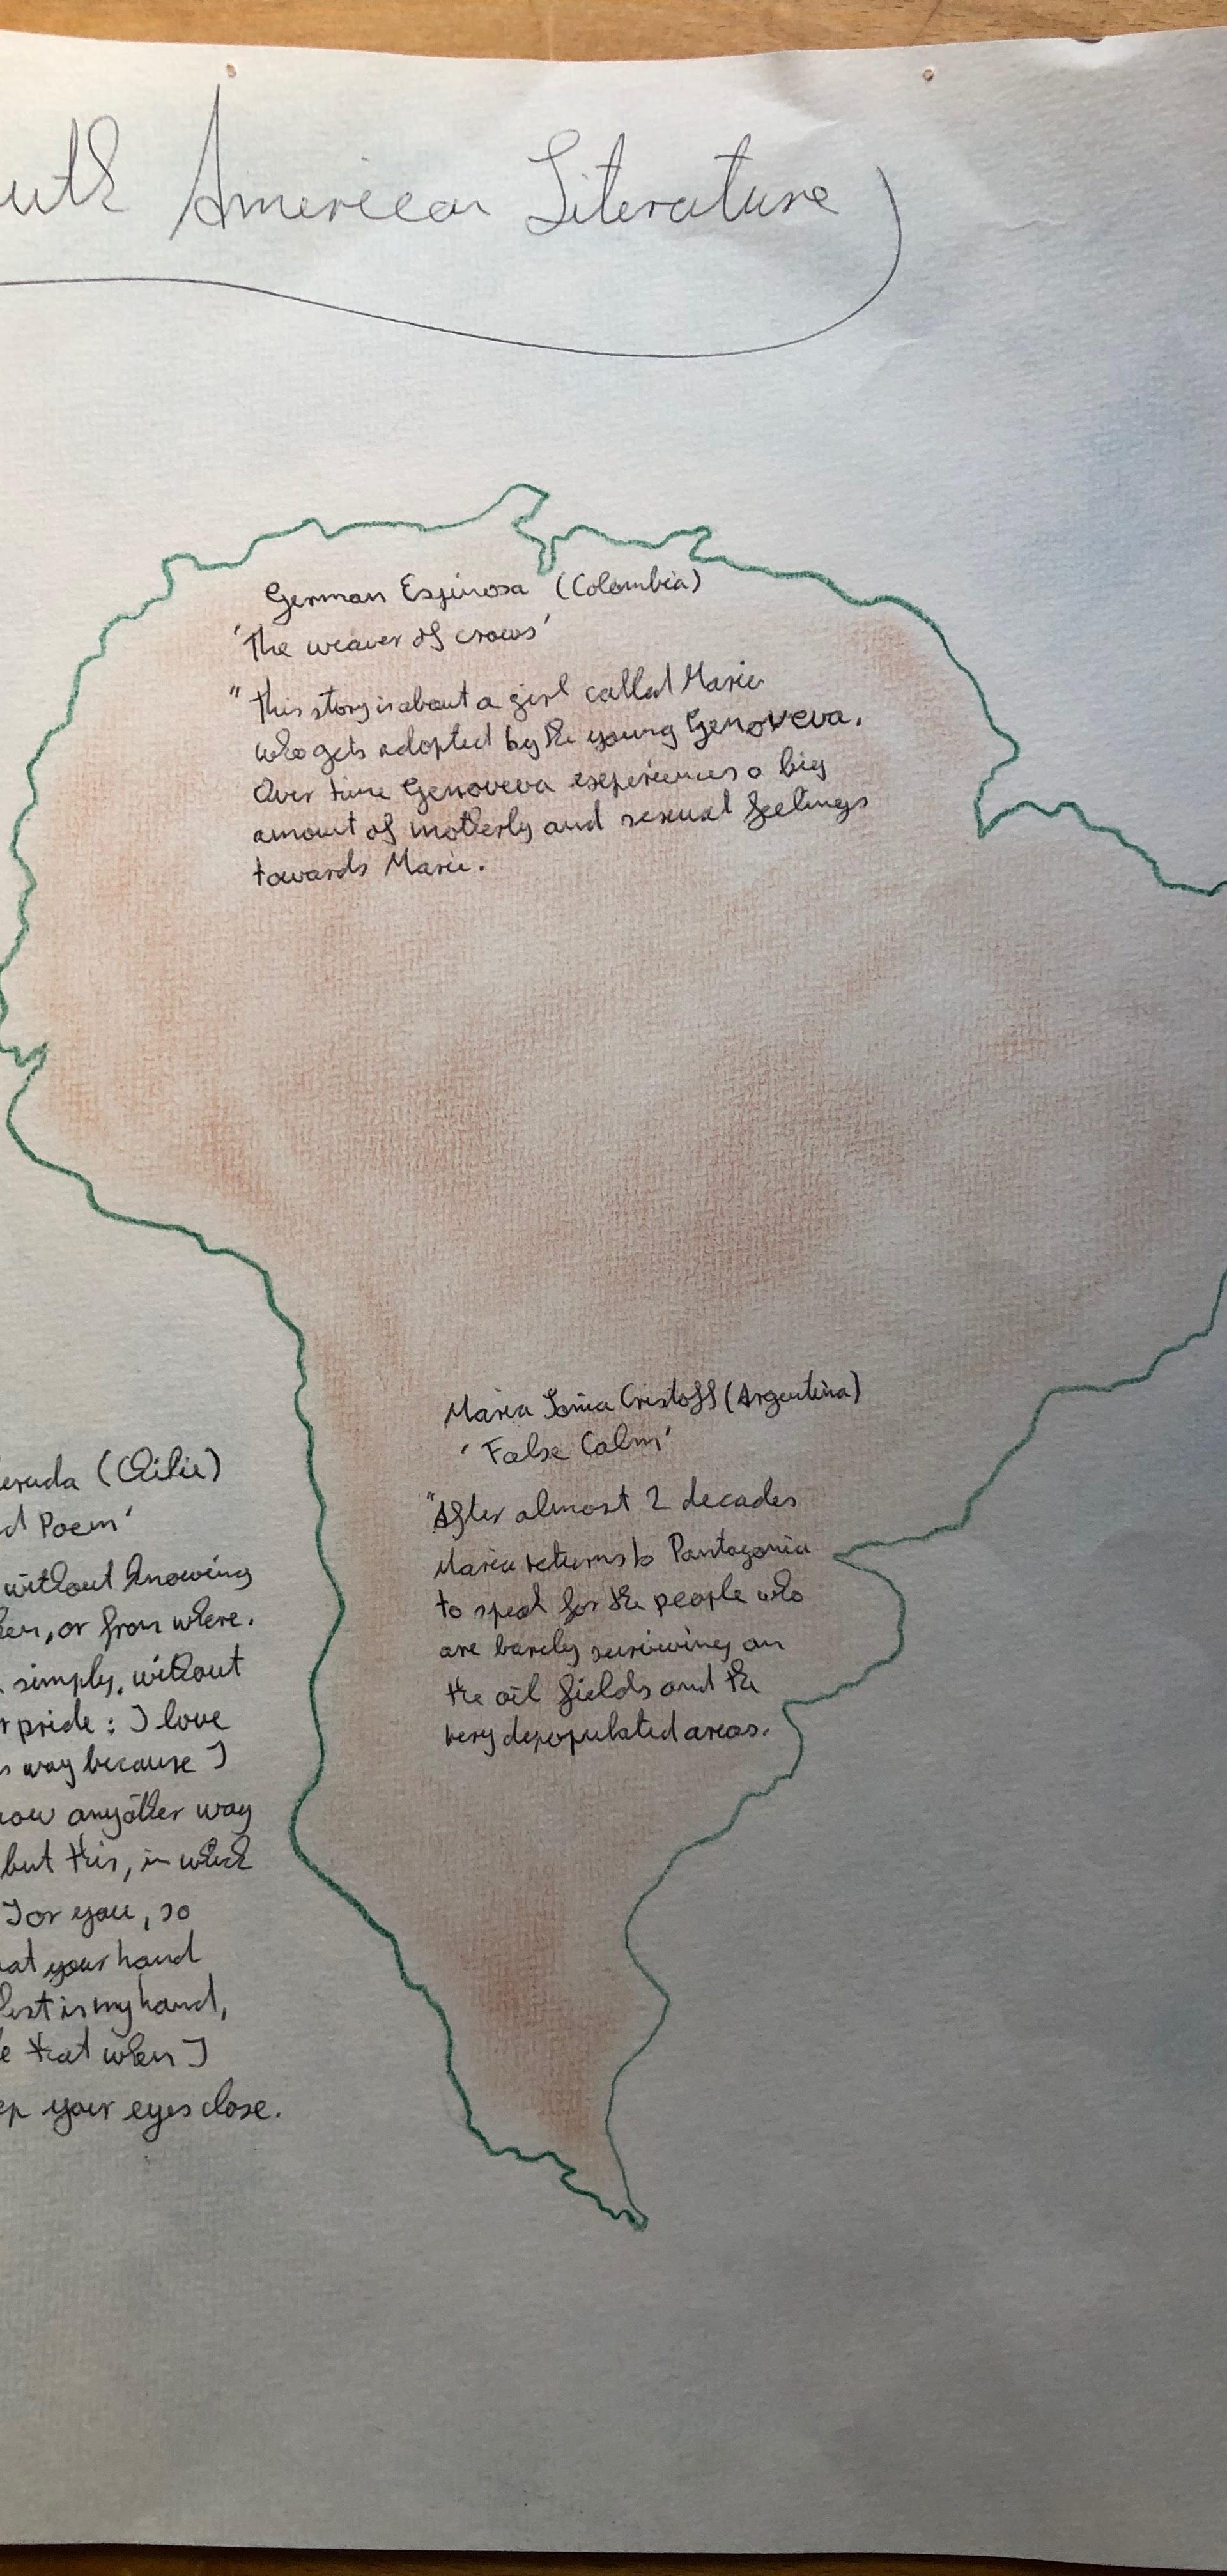 uth American Literature
German Espinosa (Colombia)
'The weaver of crows'
"This story is about a girl called Marie
who gets adopted by the young Genoveva.
Over time Genoveva experiences a big
amount of motherly and sexual feelings
towards Marie.
Maria Sonia Cristoff (Argentina)
'False Calm'
"After almost 2 decades
Maria returns to Pantagonia
to speak for the people who
are barely surviving on
the oil fields and the
very depopulated areas.
eruda (Chilie)
d Poem'
without knowing
hen, or from where.
simply, without
r pride: I love
s way because I
now any other way
but this, in which
I or you, so
hat your hand
hest is my hand,
e that when I
ep your eyes close.